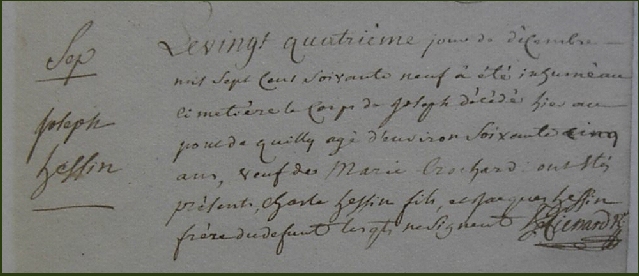 Sep
joseph
hessin
Le vingt quatrieme jour de decembre
mil sept cens soixante neuf à été inhumé au
cimetière le corps de joseph décédé hier au
pont de quilly agé d'environ soixante cinq
ans, veuf de Marie Crochard : ont étés
présents, charle hessin fils, et jacques hessin
frère du defunt lesqls ne signent